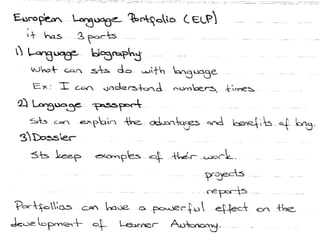 European Language Portfolio (ELP)
it has 3 parts
1) Language biography
What can sts do with language
Ex: I can understand numbers, times
2) Language passport
Sts can explain the advantages and benefits of lang.
3) Dossier
Sts keep examples of their work.
projects
reports
Portfollios can have a powerful effect on the
development of Learner Autonomy.